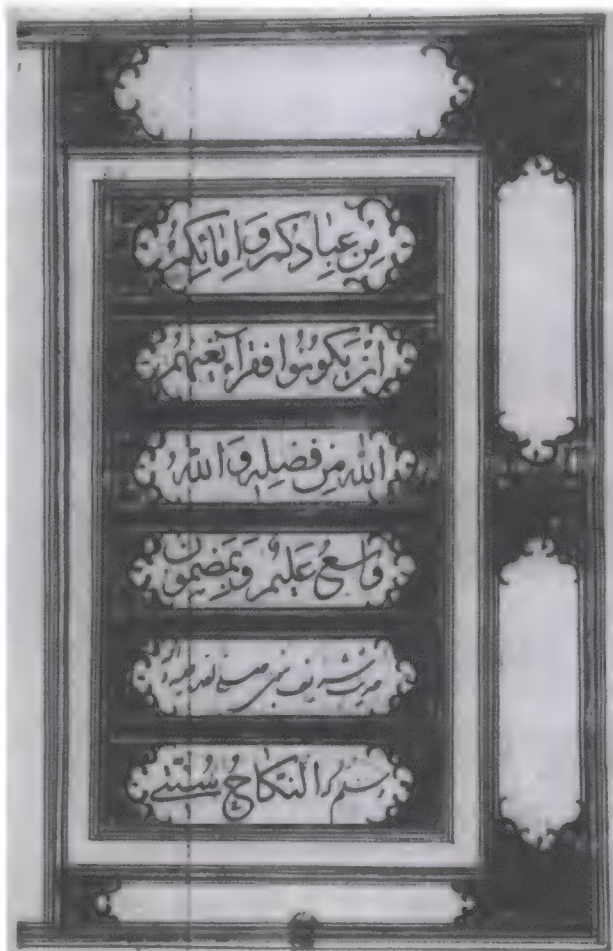 مِن عِبادِكُم وَ اِمائِكُم
اِن يَكونُوا فُقَرآءَ يُغنِهِمُ
اللهُ مِن فَضلِه وَ اللهُ
واسِعٌ عَليمٌ وَ بمَضمون
حدیث شریف نبوی صلی الله علیه و آله
وسلم که النِّکاحُ سُنَّتی